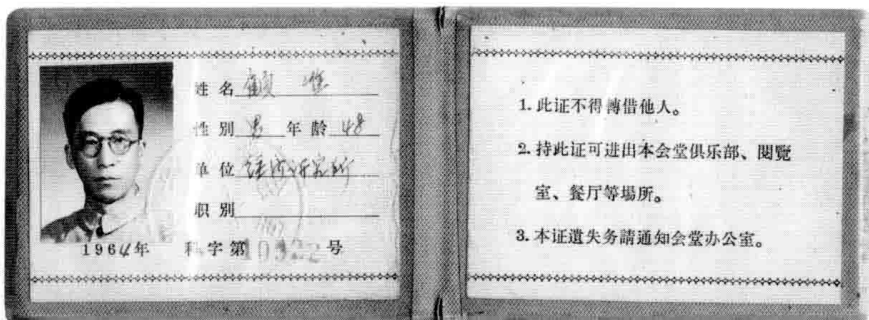 姓名 顧準
性别 男 年龄 48
单位 经济研究所
职别
1964年 科字第10322号
1. 此证不得轉借他人。
2. 持此证可进出本会堂俱乐部、閱覽
室、餐厅等場所。
3. 本证遺失务請通知会堂办公室。